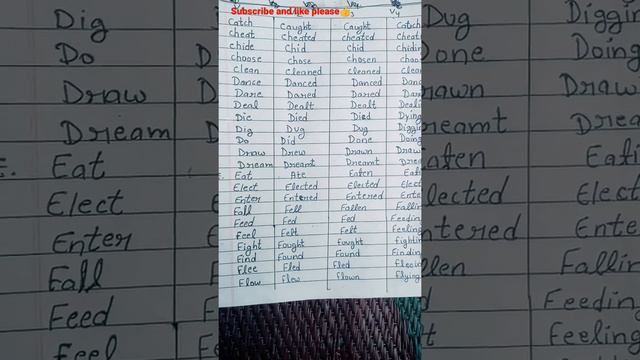 Subscribe and like please👍
3 V4
Catch Caught Caught Catch
Cheat cheated cheated Cheat
chide Chid Chid Chidin
choose Chose Chosen Choo
Clean Cleaned Cleaned Clea
Dance Danced Danced Dan
Dare Dared Dared Dar
Deal Dealt Dealt Deali
Die Died Died Dying
Dig Dug Dug Diggi
Do Did Done Doing
Draw Drew Drawn Draw
Dream Dreamt Dreamt Drea
Eat Ate Eaten Eati
Elect Elected Elected Elect
Enter Entered Entered Ente
Fall Fell Fallen Fallin
Feed Fed Fed Feeding
Feel Felt Felt Feeling
Fight Fought fought fighti
Find Found Found Findin
Flee Fled Fled Fleein
Flow Flow Flown flying
Dig
Do
Draw
Dream
Eat
Elect
Enter
Fall
Feed
Feel
Dug Diggin
Done Doing
rawn Draw
reamt Drea
aten Eati
lected Elect
ntered Ente
llen Fallin
Feedin
t Feeling